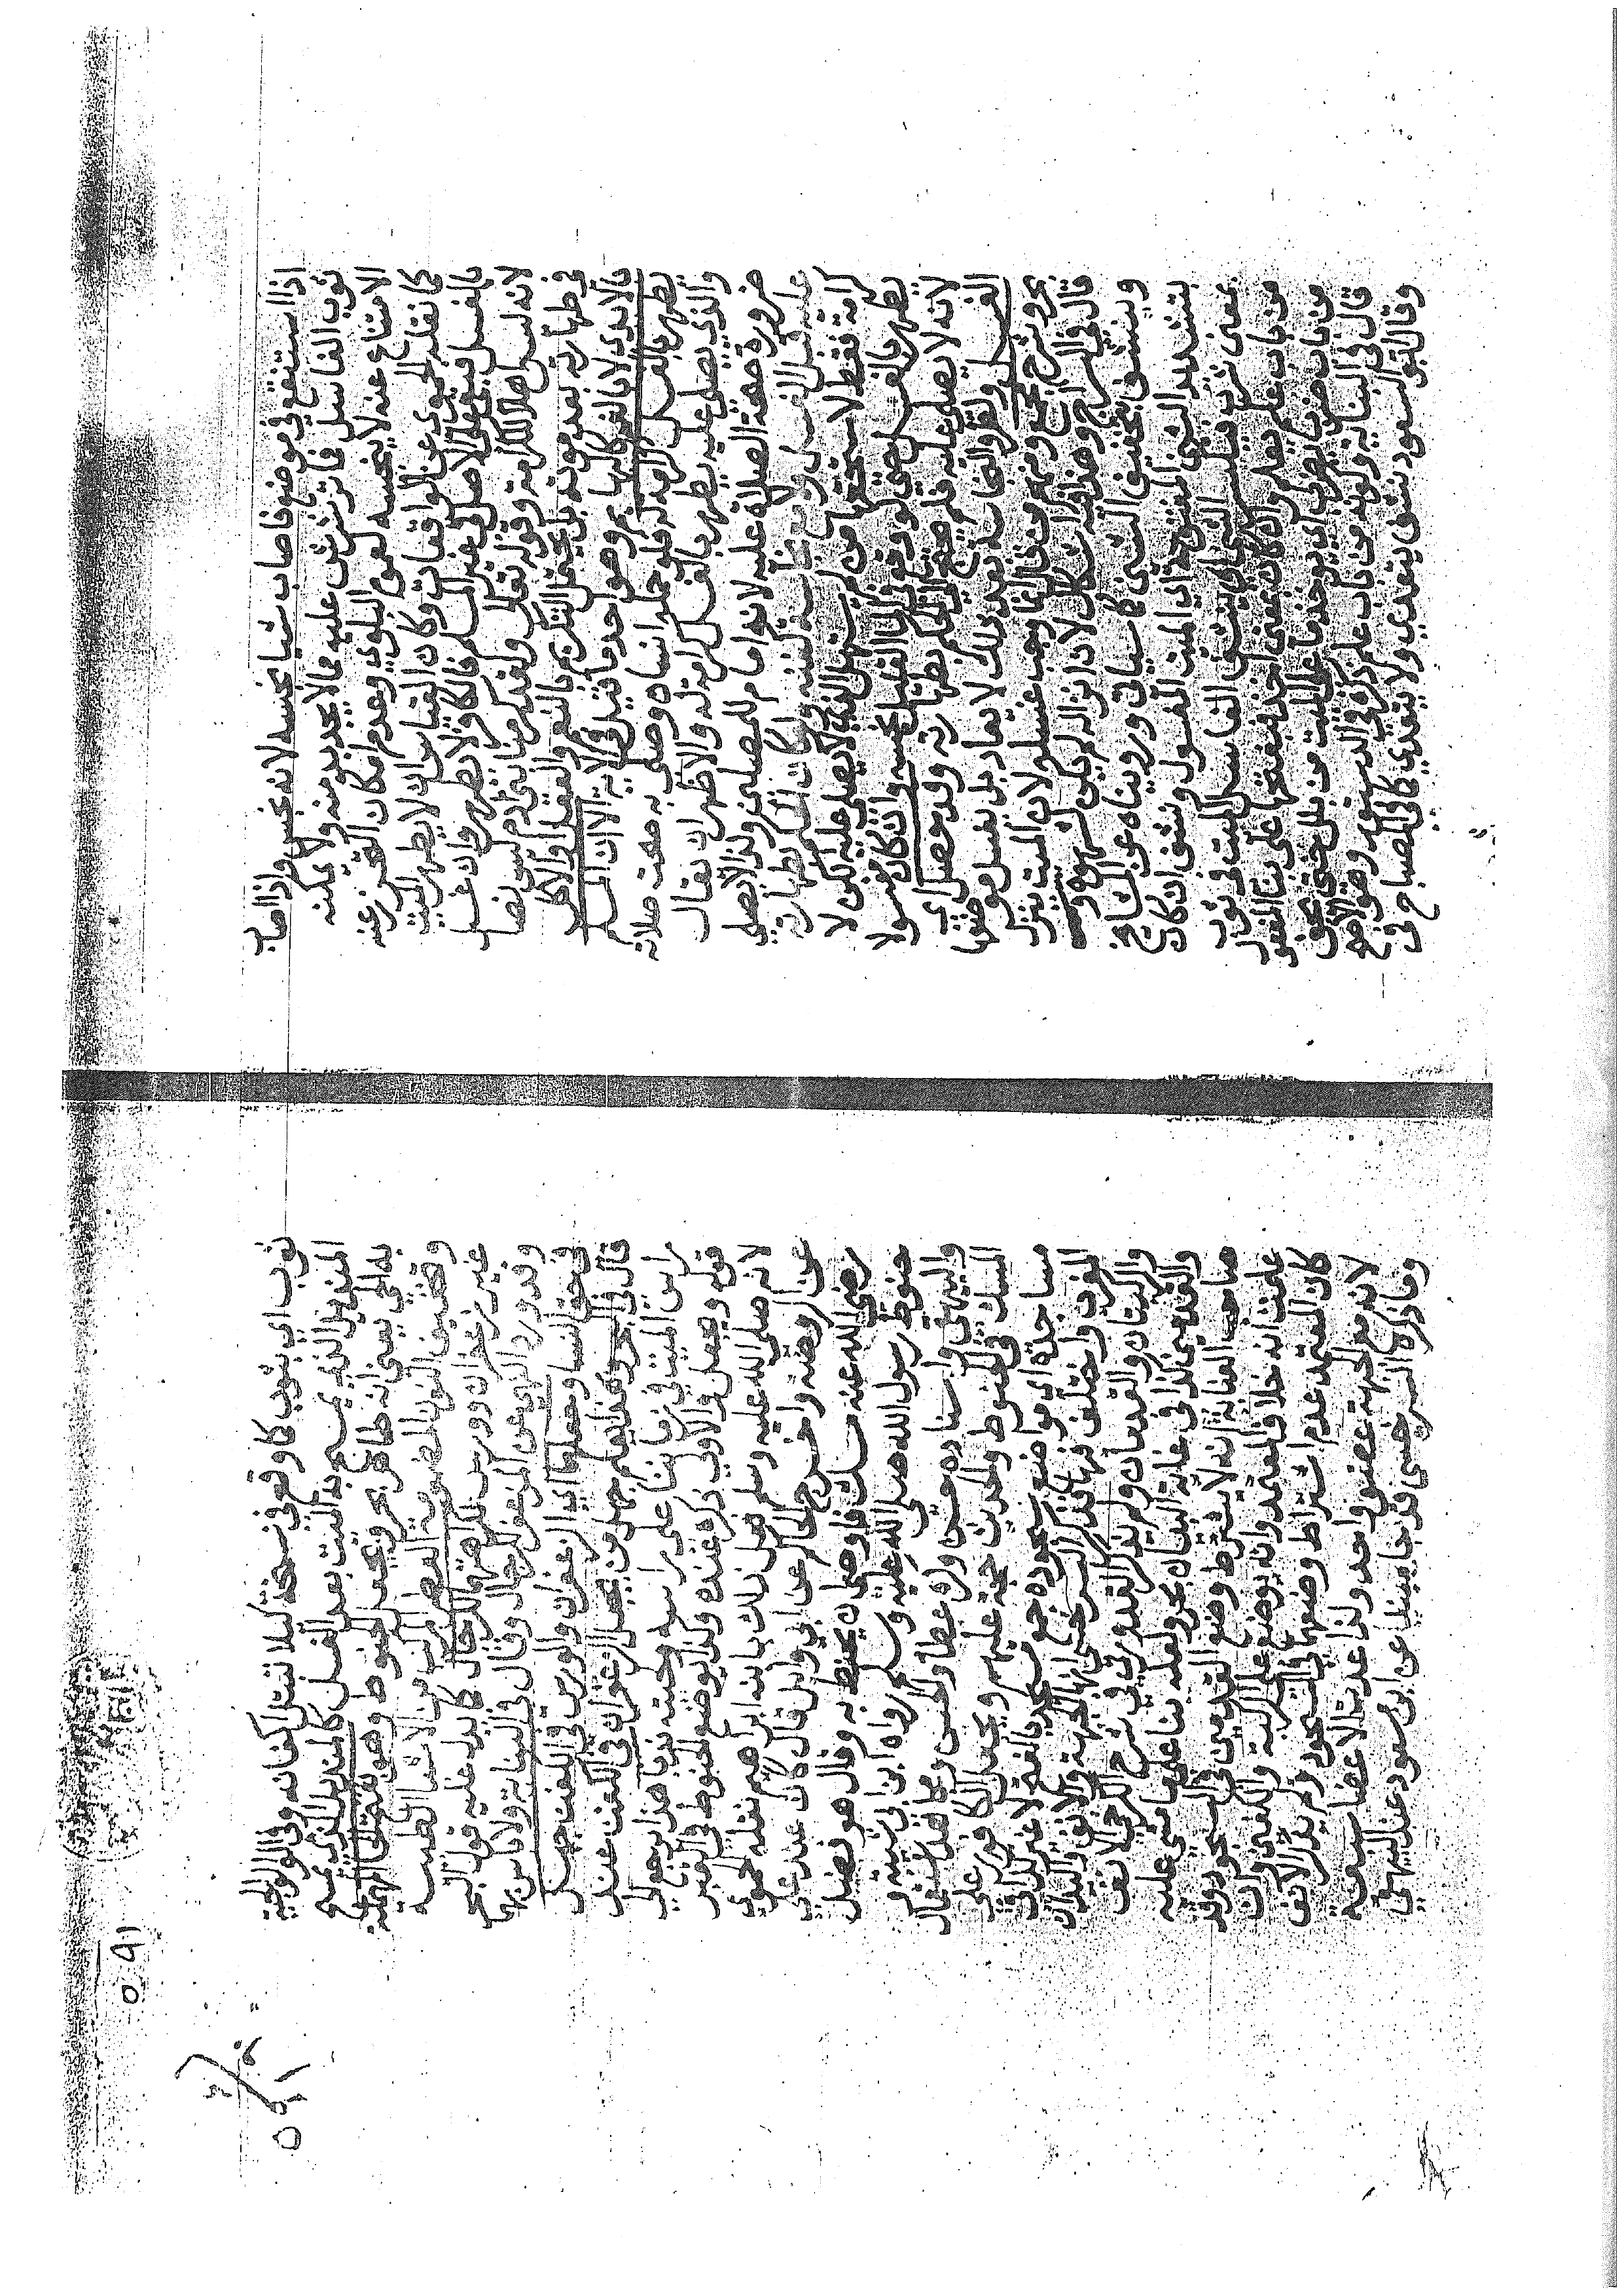 اذا استنقع في موضع فاصاب شيا نجسه لانه نجس واذا اصاب
ثوب الغاسل فا ترشش عليه مما لا يجد بد منه ولا يمكنه
الامتناع عنه لا ينجسه لعموم البلوي وعدم امكان التحرز عنه
كا نقله الحموي عن الواقعات وكان القياس ان لا يطهر الميت
بالغسل فبقي علي الاصل في غير المسلم فالكافر لا يطهر وان غسل
لانه ليس اهلا للكرامة وقوله تعالي ولقد كرمنا بني ادم ليس نصا
في طهارته بعد موته بل يحتمل التكريم بالنعم والعقل والاكل
بالايدي لا بالفم كالبهايم وهو احد ما قيل في الاية الا ان المسلم
يطهر بالغسل كرامة له فلو حمل انسانا وصلي به صحت صلاته
والذي يصلي عليه يطهر بالغسل كرامة له والاظهر ان يقال
ضرورة صحة الصلاة عليه لانه امام للمصلين ولذا لا تصلي
عليه قبل الغسل ولا مع نجاسة كفنه وكان الحكم بطهارته
كرامة فقط لاستحقها من لم يستهل لانه لا يصلي عليه لكن لا
يطهر بالغسل حتي لو وقع في الماء القليل نجسه وان كان مغسولا
لانه لا يصلي عليه فلم يحتج الي الحكم بطهارته وقد حصل اي
الغسل ولقوا النجاسة بعد ذلك لا يعاد بل يغسل موضعها
بحر وشرح مجمع ومنهم من قال انما وجب غسله لان الميت ينزل
قال في السراج وهذا فيه اشكال لان انزاله لم يكن لشهوة
وينشف بتخفيف الشين كا سياتي ورويناه عن المشايخ
بتشديد الشين المفتوحة اي الميت المغسول ونشف ان كان
بمعني شرب فليس الشي ينشف الغاسل الميت في ثوب
من باب علم يعلم وان كان بمعني اخذ فبفتحها علي بناء المفعول
من باب ضرب يضرب اي يوخذ ما علي الميت من بلل حتي يجف
قال في البناية وكونه من باب علم ذكره في الدستور وهو الاصح
وقال ابو السعود نشف يتعدي ولا يتعدي كا في المصباح في
ثوب اي بثوب كا وقع في نسخة كيلا تبتل اكفانه وفي الولوالجية
المنديل الذي يمسح به الميت بعد الغسل كالمنديل الذي يمسح
به الحي يعني انه طاهر بحر ويجعل الحنوط وهو بفتح الحاء المهملة
وتخفيف النون المضمومة العطر المركب من الاشيا الطيبة
غير زعفران وورس لكراهتهما للرجال كا يدل عليه قول البحر
وقد ورد النهي عن المزعفر للرجال وقال في البناية ولا باس بهما
في حق النسا وجعلهما اي الزعفران والورس في الكفن جهل
قال في البحر وبهذا يعلم جهل من يجعل الزعفران في الكفن عند
راس الميت في زماننا علي راسه ولحيته ندبا هذا يرجع الي
قوله ويجعل والاولي ذكره عنده ولذا يوضع الحنوط في القبر
لانه صلي الله عليه وسلم فعل ذلك بابنه ابراهيم نقله الحموي
عن الروضة واخرج الحاكم عن ابي وايل قال كان عند علي
رضي الله عنه مسك فاوصي ان يحنط به وقال هو فضل
حنوط رسول الله صلي الله عليه وسلم رواه ابن ابي شيبة و
والبيهقي واسناده حسن وكره عطا والحسن ومجاهد استعمال
المسك في الحنوط والحديث حجة عليهم ويجعل الكافور علي
مساجده اي مواضع سجوده جمع مسجد بالفتح لا غير كذا في
المغرب واختلف فيها فذكر السرخسي انها الجبهة والانف واليدان
والركبتان والقدمان ولم يذكر القدوري في شرح الكرخي الانف
والقدمين كذا في غاية البيان بحر ولعله بنا علي ما مشي عليه
صاحب العناية انه لا يشترط وضع القدمين في السجود وقد
علمت انه خلاف المعتمد وانه يوضع علي الركبة والكفين وان
كان المعتمد عدم اشتراط وضعها في السجود ولم يذكر الانف
لانه مع الجبهة عضو واحد ولذا عدت الاعضا سبعة
وما ذكره السرخسي قد جا مبينا عن ابن مسعود عند البيهقي
٥٩١